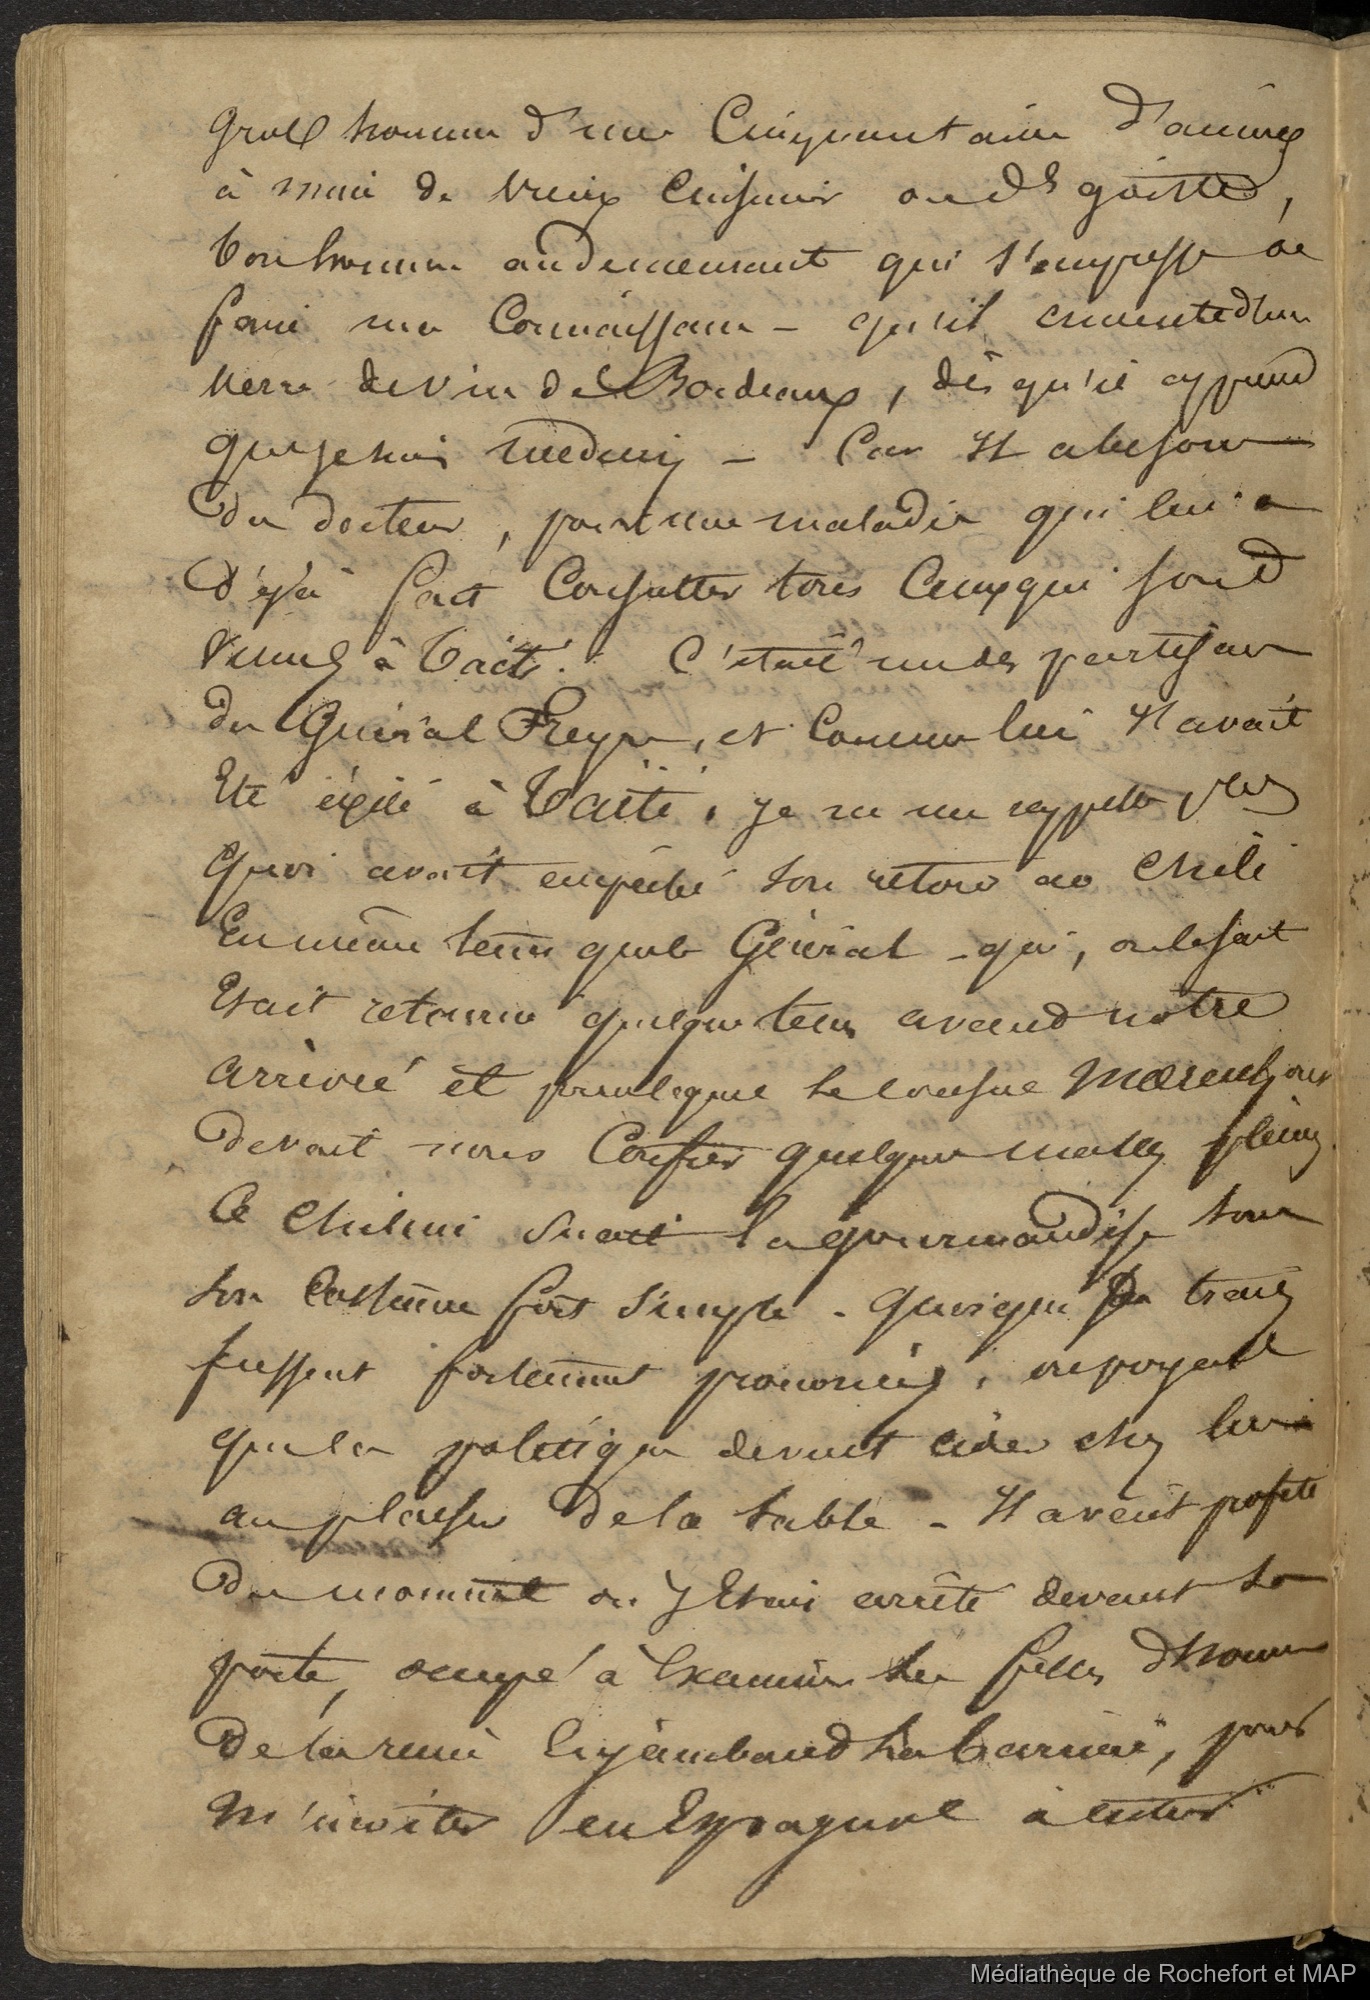 gros homme d'une Cinquantaine d'années
à mine de vieux Cuisinier ou de gasté,
bon homme au demeurant qui s'empresse de
faire ma Connaissance - qu'il cimente d'un
verre de vin de Bordeaux, dès qu'il apprend
que je suis médecin - Car Il a besoin
du docteur, pour une maladie qui lui a
déjà fait Consulter tous Ceux qui sont
venus à Taïti. C'était un des partisans
du Général Freyre, et Comme lui Il avait
Eté éxilé à Taïti, je ne me rappelle plus
quoi avait empêché son retour au Chili
En même tems que le Général - qui, on le sait
Etait retourné quelque tems avant notre
arrivée et pour lequel le Consul Moerenhout
devait nous Confier quelques malles pleines.
Ce Chilien suait la gourmandise sous
son Costume fort simple - quoique ses traits
fussent fortement prononcés, on voyait
que la politique devait céder chez lui
au plaisir de la table - Il avait profité
du moment où J'Etais arrêté devant sa
porte, occupé à Examiner les filles d'honneur
de la reine Enjambant la barrière, pour
m'inviter en Espagnol à entrer
Médiathèque de Rochefort et MAP